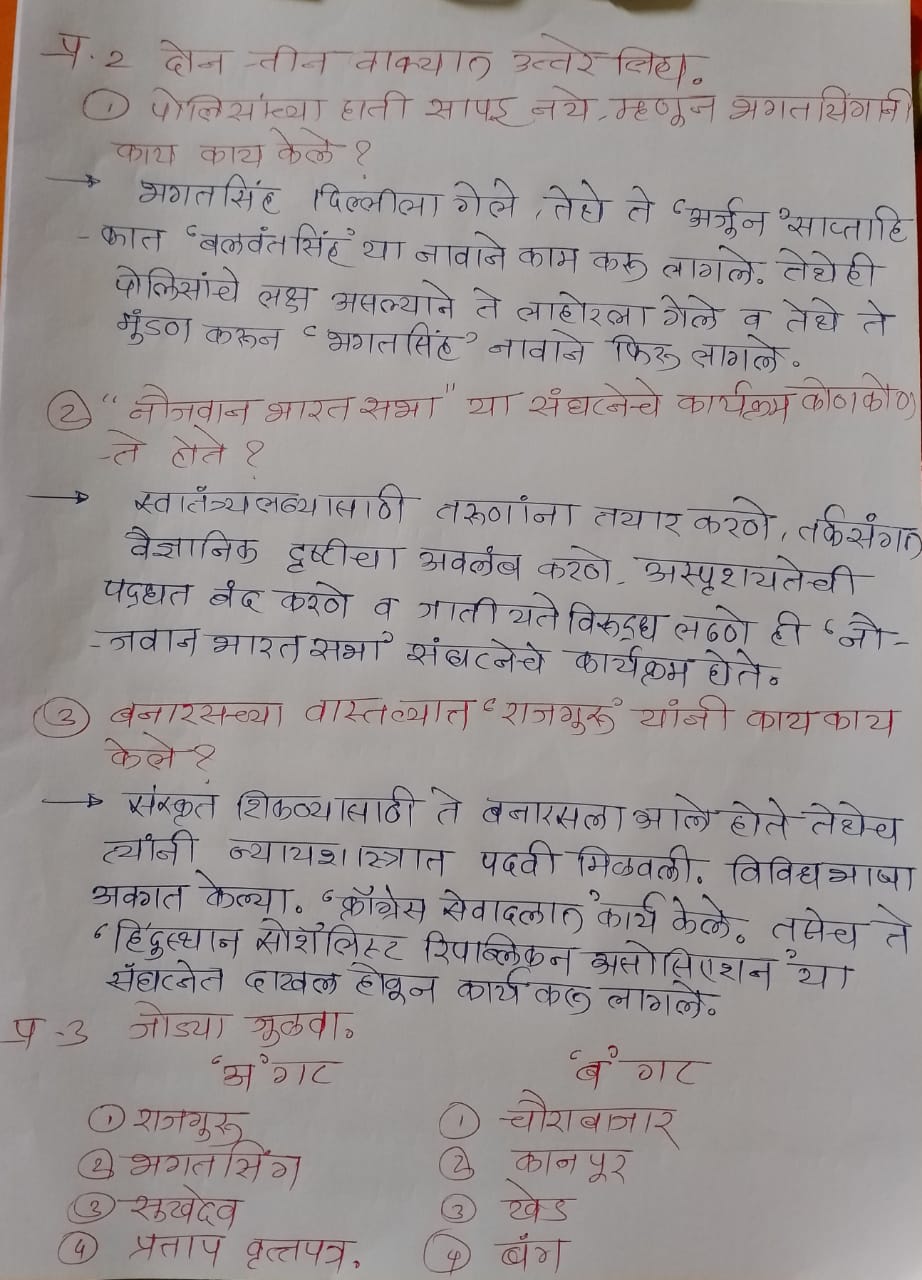 प्र.2 दोन-तीन वाक्यात उत्तरे लिहा.
① पोलिसांच्या हाती सापडू नये, म्हणून भगतसिंगांनी
काय काय केले?
→ भगतसिंह दिल्लीला गेले, तेथे ते 'अर्जुन' साप्ताहि
-कात 'बलवंतसिंह' या नावाने काम करू लागले. तेथेही
पोलिसांचे लक्ष असल्याने ते लाहोरला गेले व तेथे ते
मुंडण करून 'भगतसिंह' नावाने फिरू लागले.
② "नौजवान भारत सभा" या संघटनेचे कार्यक्रम कोणकोण
-ते होते?
→ स्वातंत्र्यलढ्यासाठी तरुणांना तयार करणे, तर्कसंगत
वैज्ञानिक दृष्टीचा अवलंब करणे, अस्पृशयतेची
पद्धत बंद करणे व जातीयतेविरुद्ध लढणे ही 'नौ-
-जवान भारत सभा' संघटनेचे कार्यक्रम होते.
③ बनारसच्या वास्तव्यात 'राजगुरू' यांनी काय काय
केले?
→ संस्कृत शिकण्यासाठी ते बनारसला आले होते तेथेच
त्यांनी न्यायशास्त्रात पदवी मिळवली. विविध भाषा
अवगत केल्या. 'काँग्रेस सेवादलात' कार्य केले. तसेच ते
'हिंदुस्थान सोशॅलिस्ट रिपब्लिकन असोसिएशन' या
संघटनेत दाखल होवून कार्य करू लागले.
प्र.3 जोड्या जुळवा.
'अ' गट 'ब' गट
① राजगुरू ① चौराबाजार
② भगतसिंग ② कानपूर
③ सुखदेव ③ खेड
④ प्रताप वृत्तपत्र. ④ बंग